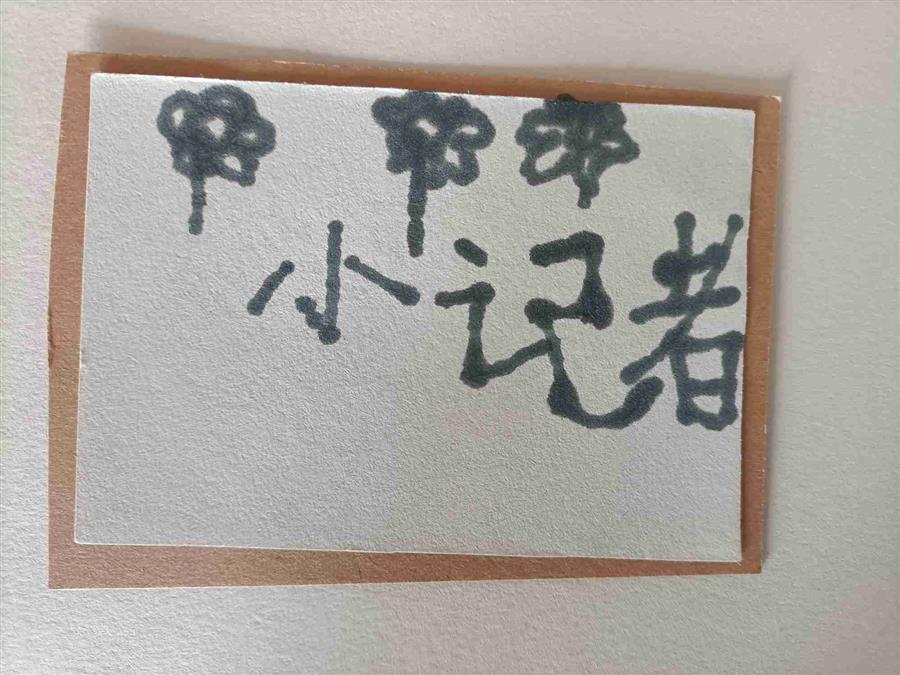 小记者